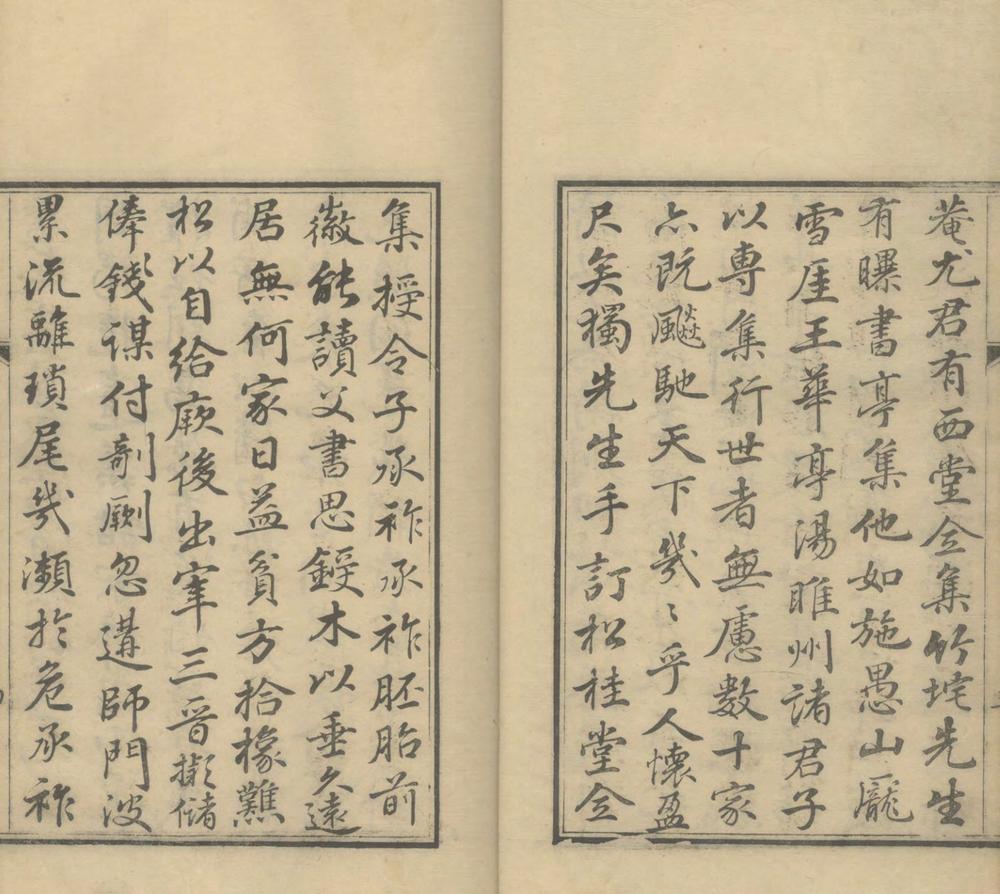 菴尤君有西堂全集竹垞先生
有曝書亭集他如施愚山龎
雪厓王華亭湯睢州諸君子
以専集行世者無慮數十家
亦既飈馳天下幾〻乎人懷盈
尺矣獨先生手訂松桂堂全
集授令子承祚承祚胚胎前
徽能讀父書思鋟木以垂久遠
居無何家日益貧方拾橡難
松以自給厥後出宰三晉擬儲
俸錢謀付剞劂忽遘師門波
累流離瑣尾幾瀕於危承祚